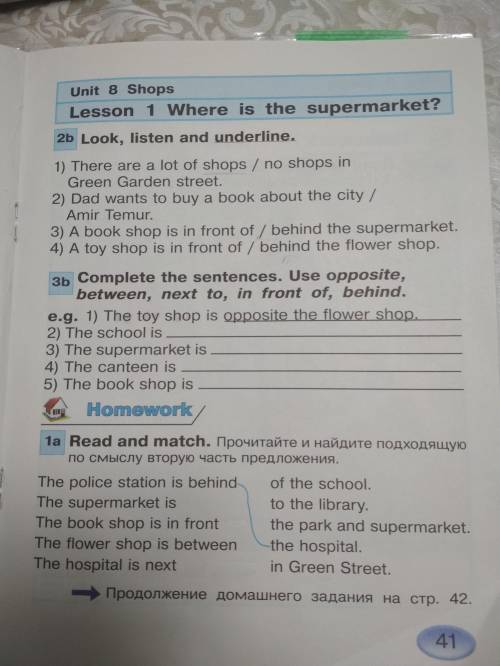 Unit 8 Shops
Lesson 1 Where is the supermarket?
2b Look, listen and underline.
1) There are a lot of shops / no shops in
Green Garden street.
2) Dad wants to buy a book about the city /
Amir Temur.
3) A book shop is in front of / behind the supermarket.
4) A toy shop is in front of / behind the flower shop.
3b Complete the sentences. Use opposite,
between, next to, in front of, behind.
e.g. 1) The toy shop is opposite the flower shop.
2) The school is
3) The supermarket is
4) The canteen is
5) The book shop is
Homework
1a Read and match. Прочитайте и найдите подходящую
по смыслу вторую часть предложения.
The police station is behind of the school.
The supermarket is to the library.
The book shop is in front the park and supermarket.
The flower shop is between the hospital.
The hospital is next in Green Street.
Продолжение домашнего задания на стр. 42.
41